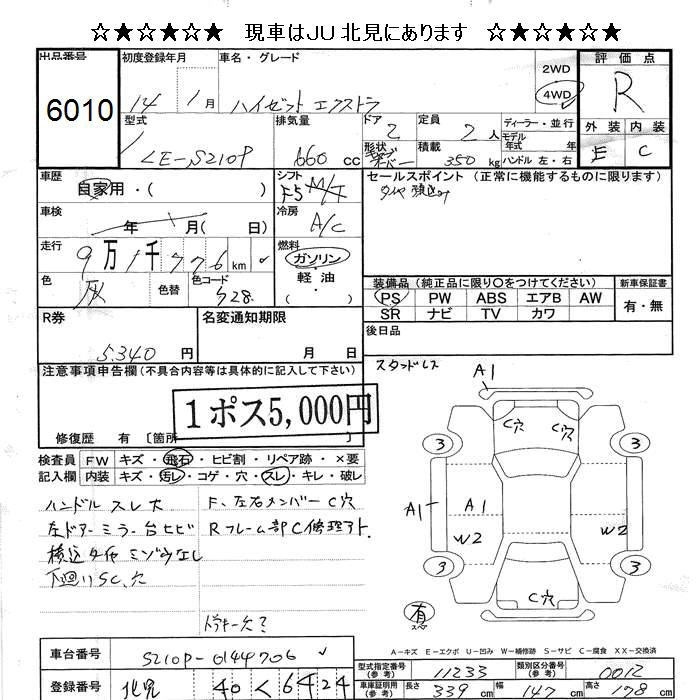 ☆★☆★☆★ 現車はJU北見にあります ☆★☆★☆★
出品番号 初度登録年月 車名・グレード 2WD 評価点
6010 14 1月 ハイゼット エクストラ 4WD R
型式 排気量 ドア 定員 ディーラー・並行 外装 内装
LE-S210P 660cc 2 2人 モデル年式 年式 E C
形状 積載 350kg ハンドル 左・右
車歴 シフト セールスポイント (正常に機能するものに限ります)
自家用・( ) F5 M/T タイヤ積込み
車検 冷房
年 月( 日) A/C
走行 燃料
9万1千776km ガソリン
色 色替 色コード 軽油 装備品(純正品に限り○をつけてください) 新車保証書
灰 S28 ・( ) PS PW ABS エアB AW 有・無
R券 名変通知期限 SR ナビ TV カワ
5,340円 月 日 後日品
注意事項申告欄(不具合内容等は具体的に記入して下さい) スタッドレス
1ポス5,000円
修復歴 有 〔箇所 〕
検査員 FW キズ・飛石・ヒビ割・リペア跡・×要
記入欄 内装 キズ・汚レ・コゲ・穴・スレ・キレ・破レ
ハンドル スレ大 F、左右メンバー C穴
左ドアーミラー台ヒビ Rフレーム部C修理アト、
積込タイヤ ミゾウなし
下廻りSC、穴
ドアキー欠?
A1
C穴 C穴
3 3
A1 A1
W2 W2
3 3
C穴
有
スペ
A-キズ E-エクボ U-凹み W-補修跡 S-サビ C-腐食 XX-交換済
車台番号 S210P-0144706
型式指定番号(参考) 11233 類別区分番号(参考) 0012
登録番号 北見 40 く 6424
車庫証明用(参考) 長さ 339cm 幅 147cm 高さ 178cm